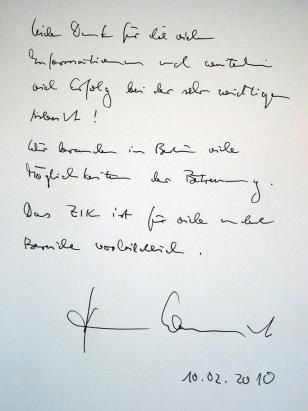 Vielen Dank für die vielen
Informationen und weiterhin
viel Erfolg bei der sehr wichtigen
Arbeit!
Wir brauchen in Berlin viele
Möglichkeiten der Betreuung.
Das ZIK ist für viele
Bereiche vorbildlich.
10.02.2010